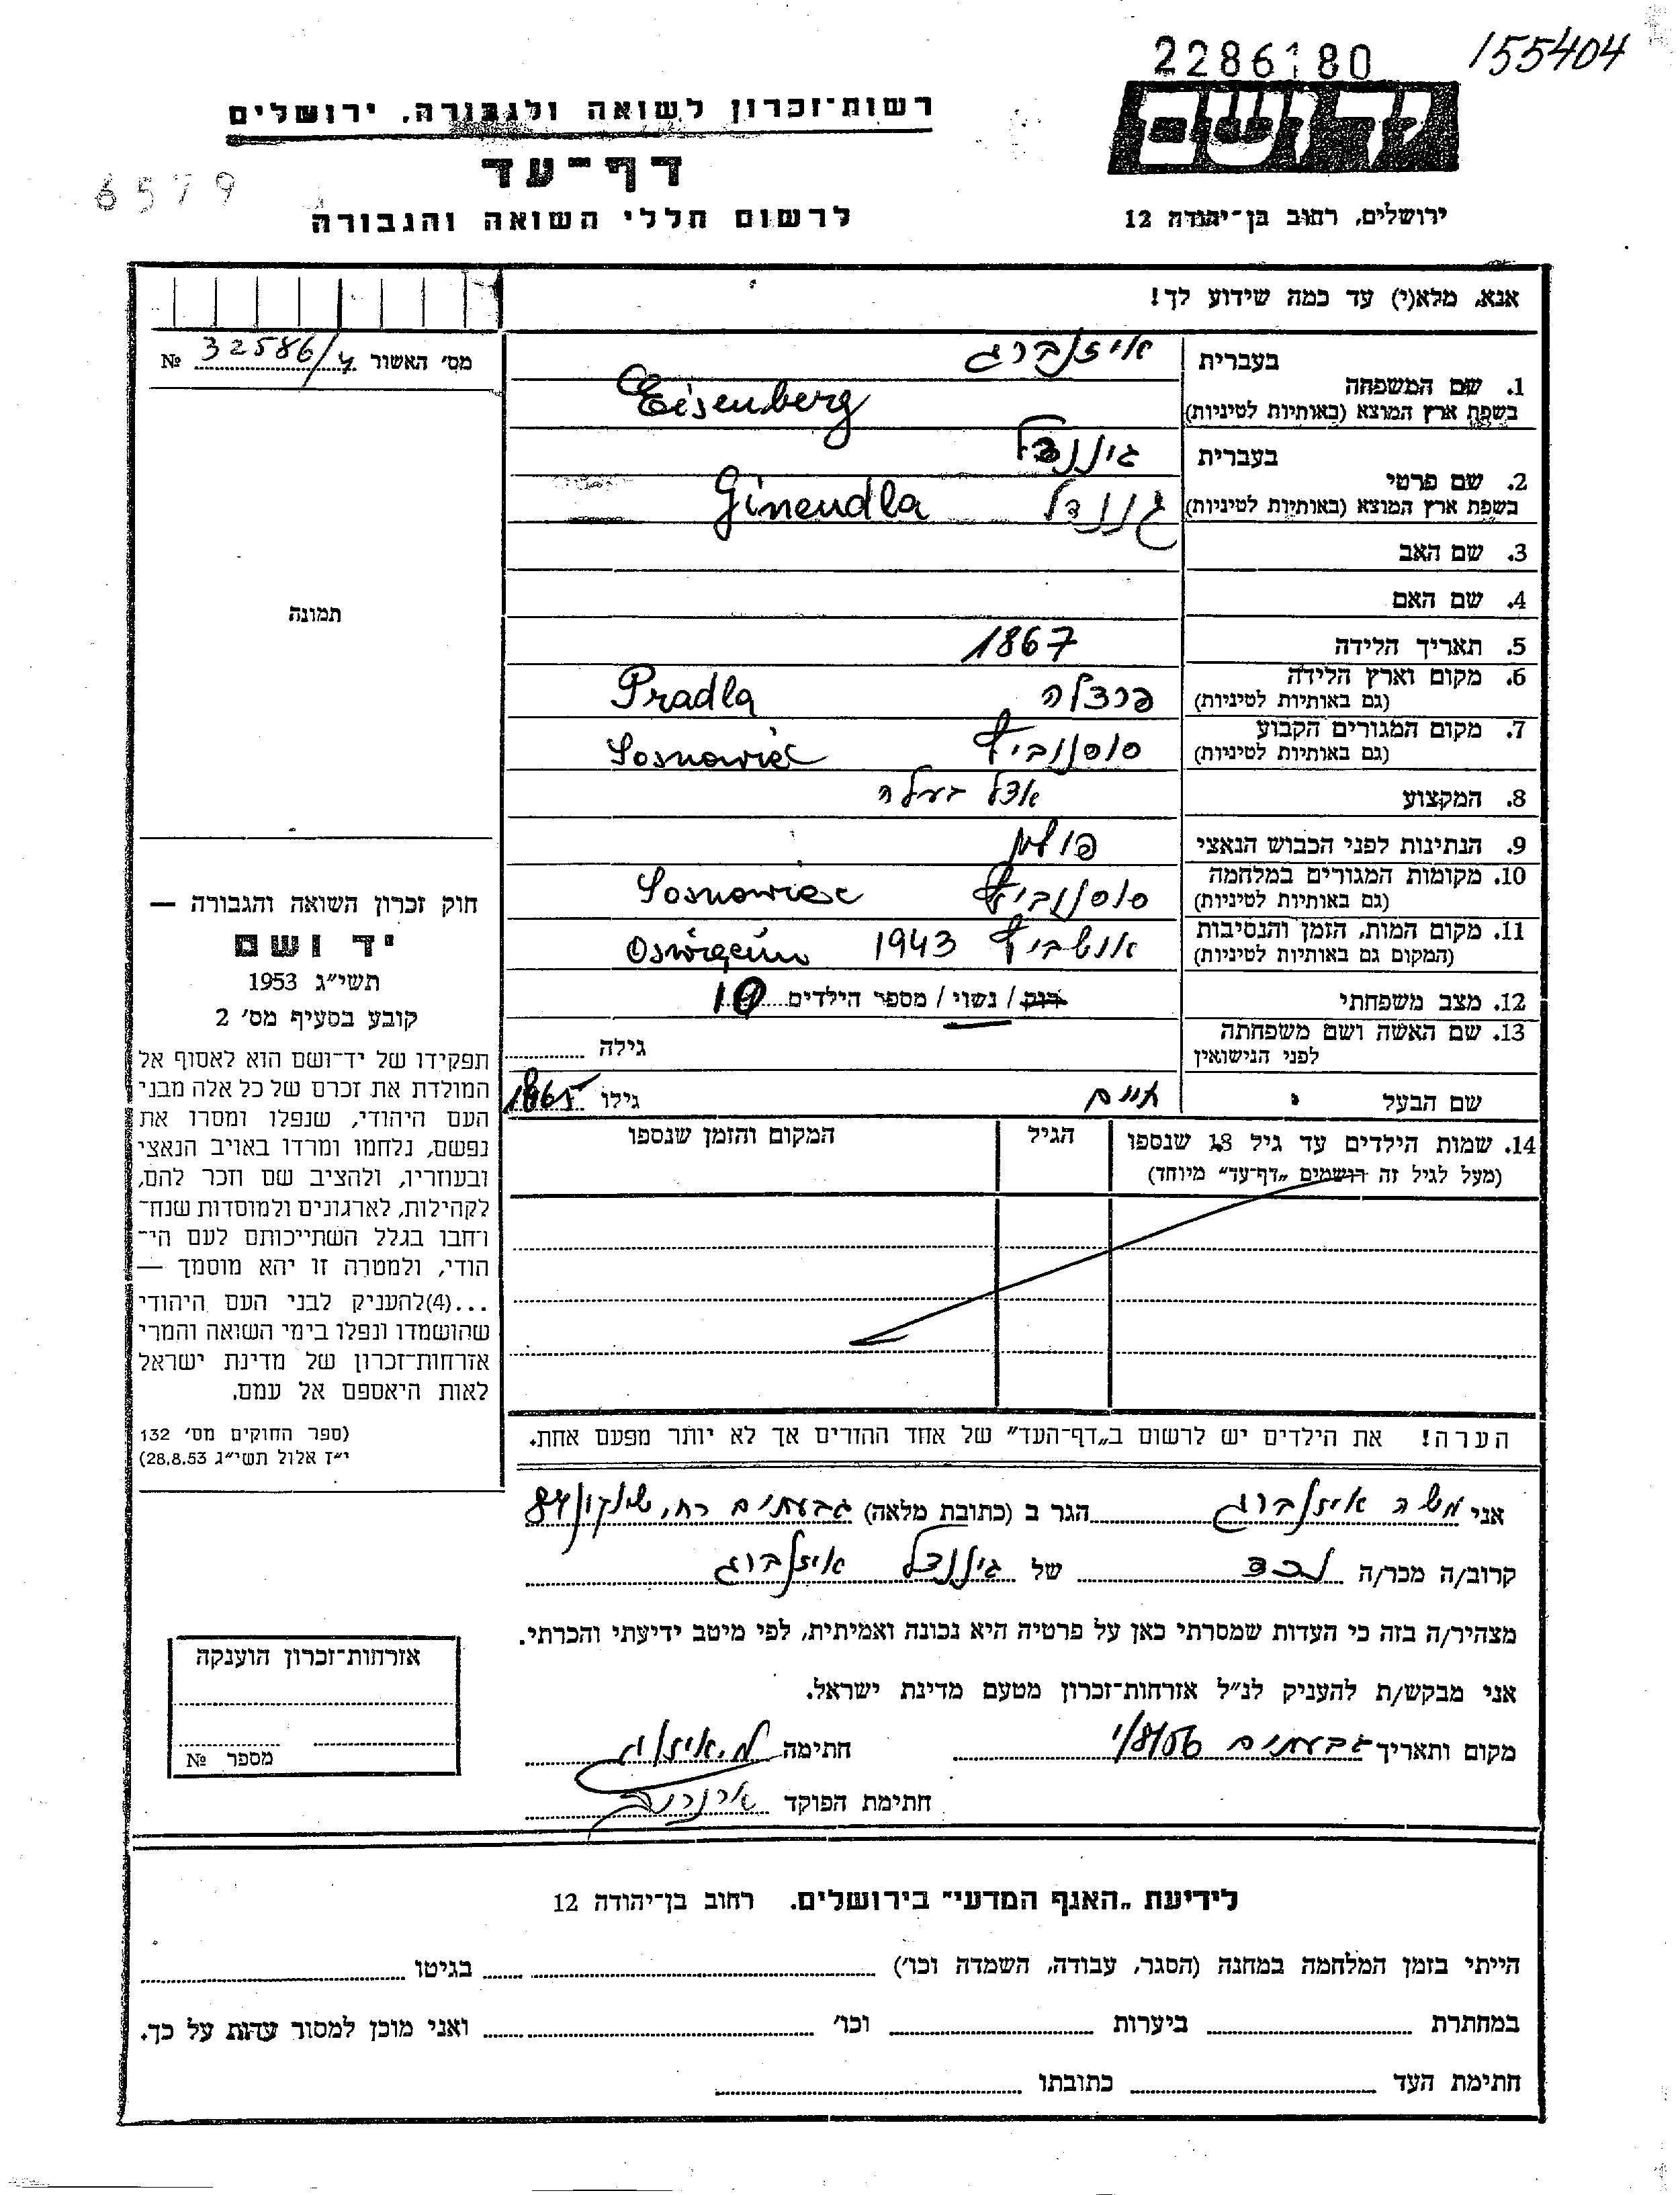 2286180
155404
רשות־זכרון לשואה ולגבורה, ירושלים
יד ושם
דף־עד
6579
לרשום חללי השואה והגבורה
ירושלים, רחוב בן־יהודה 12
אנא, מלא(י) עד כמה שידוע לך!
מס׳ האשור 32586/ № 
בעברית איזנברג
1. שם המשפחה
בשפת ארץ המוצא (באותיות לטיניות) Eisenberg
בעברית גיננדל
2. שם פרטי
בשפת ארץ המוצא (באותיות לטיניות) גננדל Ginendla
3. שם האב
4. שם האם
תמונה
5. תאריך הלידה 1867
6. מקום וארץ הלידה
(גם באותיות לטיניות) פרדלה Pradla
7. מקום המגורים הקבוע
(גם באותיות לטיניות) סוסנוביץ Sosnowiec
8. המקצוע אצל בעלה
9. הנתינות לפני הכבוש הנאצי פולין
10. מקומות המגורים במלחמה
(גם באותיות לטיניות) סוסנוביץ Sosnowiec
11. מקום המות, הזמן והנסיבות
(המקום גם באותיות לטיניות) אושביץ 1943 Oświęcim
12. מצב משפחתי רוק / נשוי / מספר הילדים 10
13. שם האשה ושם משפחתה
לפני הנישואין גילה
שם הבעל חיים גילו 1865
14. שמות הילדים עד גיל 18 שנספו הגיל המקום והזמן שנספו
(מעל לגיל זה רושמים „דף־עד” מיוחד)
הערה! את הילדים יש לרשום ב„דף־העד” של אחד ההורים אך לא יותר מפעם אחת.
חוק זכרון השואה והגבורה —
יד ושם
תשי״ג 1953
קובע בסעיף מס׳ 2
תפקידו של יד־ושם הוא לאסוף אל
המולדת את זכרם של כל אלה מבני
העם היהודי, שנפלו ומסרו את
נפשם, נלחמו ומרדו באויב הנאצי
ובעוזריו, ולהציב שם וזכר להם,
לקהילות, לארגונים ולמוסדות שנח־
רחבו בגלל השתייכותם לעם הי־
הודי, ולמטרה זו יהא מוסמך —
...(4)להעניק לבני העם היהודי
שהושמדו ונפלו בימי השואה והמרי
אזרחות־זכרון של מדינת ישראל
לאות היאספם אל עמם.
(ספר החוקים מס׳ 132
י״ז אלול תשי״ג 28.8.53)
אני משה איזנברג הגר ב (כתובת מלאה) גבעתים רח, שינקין 84
קרוב/ה מכר/ה נכד של גיננדל איזנברג
מצהיר/ה בזה כי העדות שמסרתי כאן על פרטיה היא נכונה ואמיתית, לפי מיטב ידיעתי והכרתי.
אני מבקש/ת להעניק לנ״ל אזרחות־זכרון מטעם מדינת ישראל.
מקום ותאריך גבעתים 1/8/56 חתימה
חתימת הפוקד
אזרחות־זכרון הוענקה
מספר №
לידיעת „האגף המדעי” בירושלים. רחוב בן־יהודה 12
הייתי בזמן המלחמה במחנה (הסגר, עבודה, השמדה וכו׳) בגיטו
במחתרת ביערות וכו׳ ואני מוכן למסור עדות על כך.
חתימת העד כתובתו